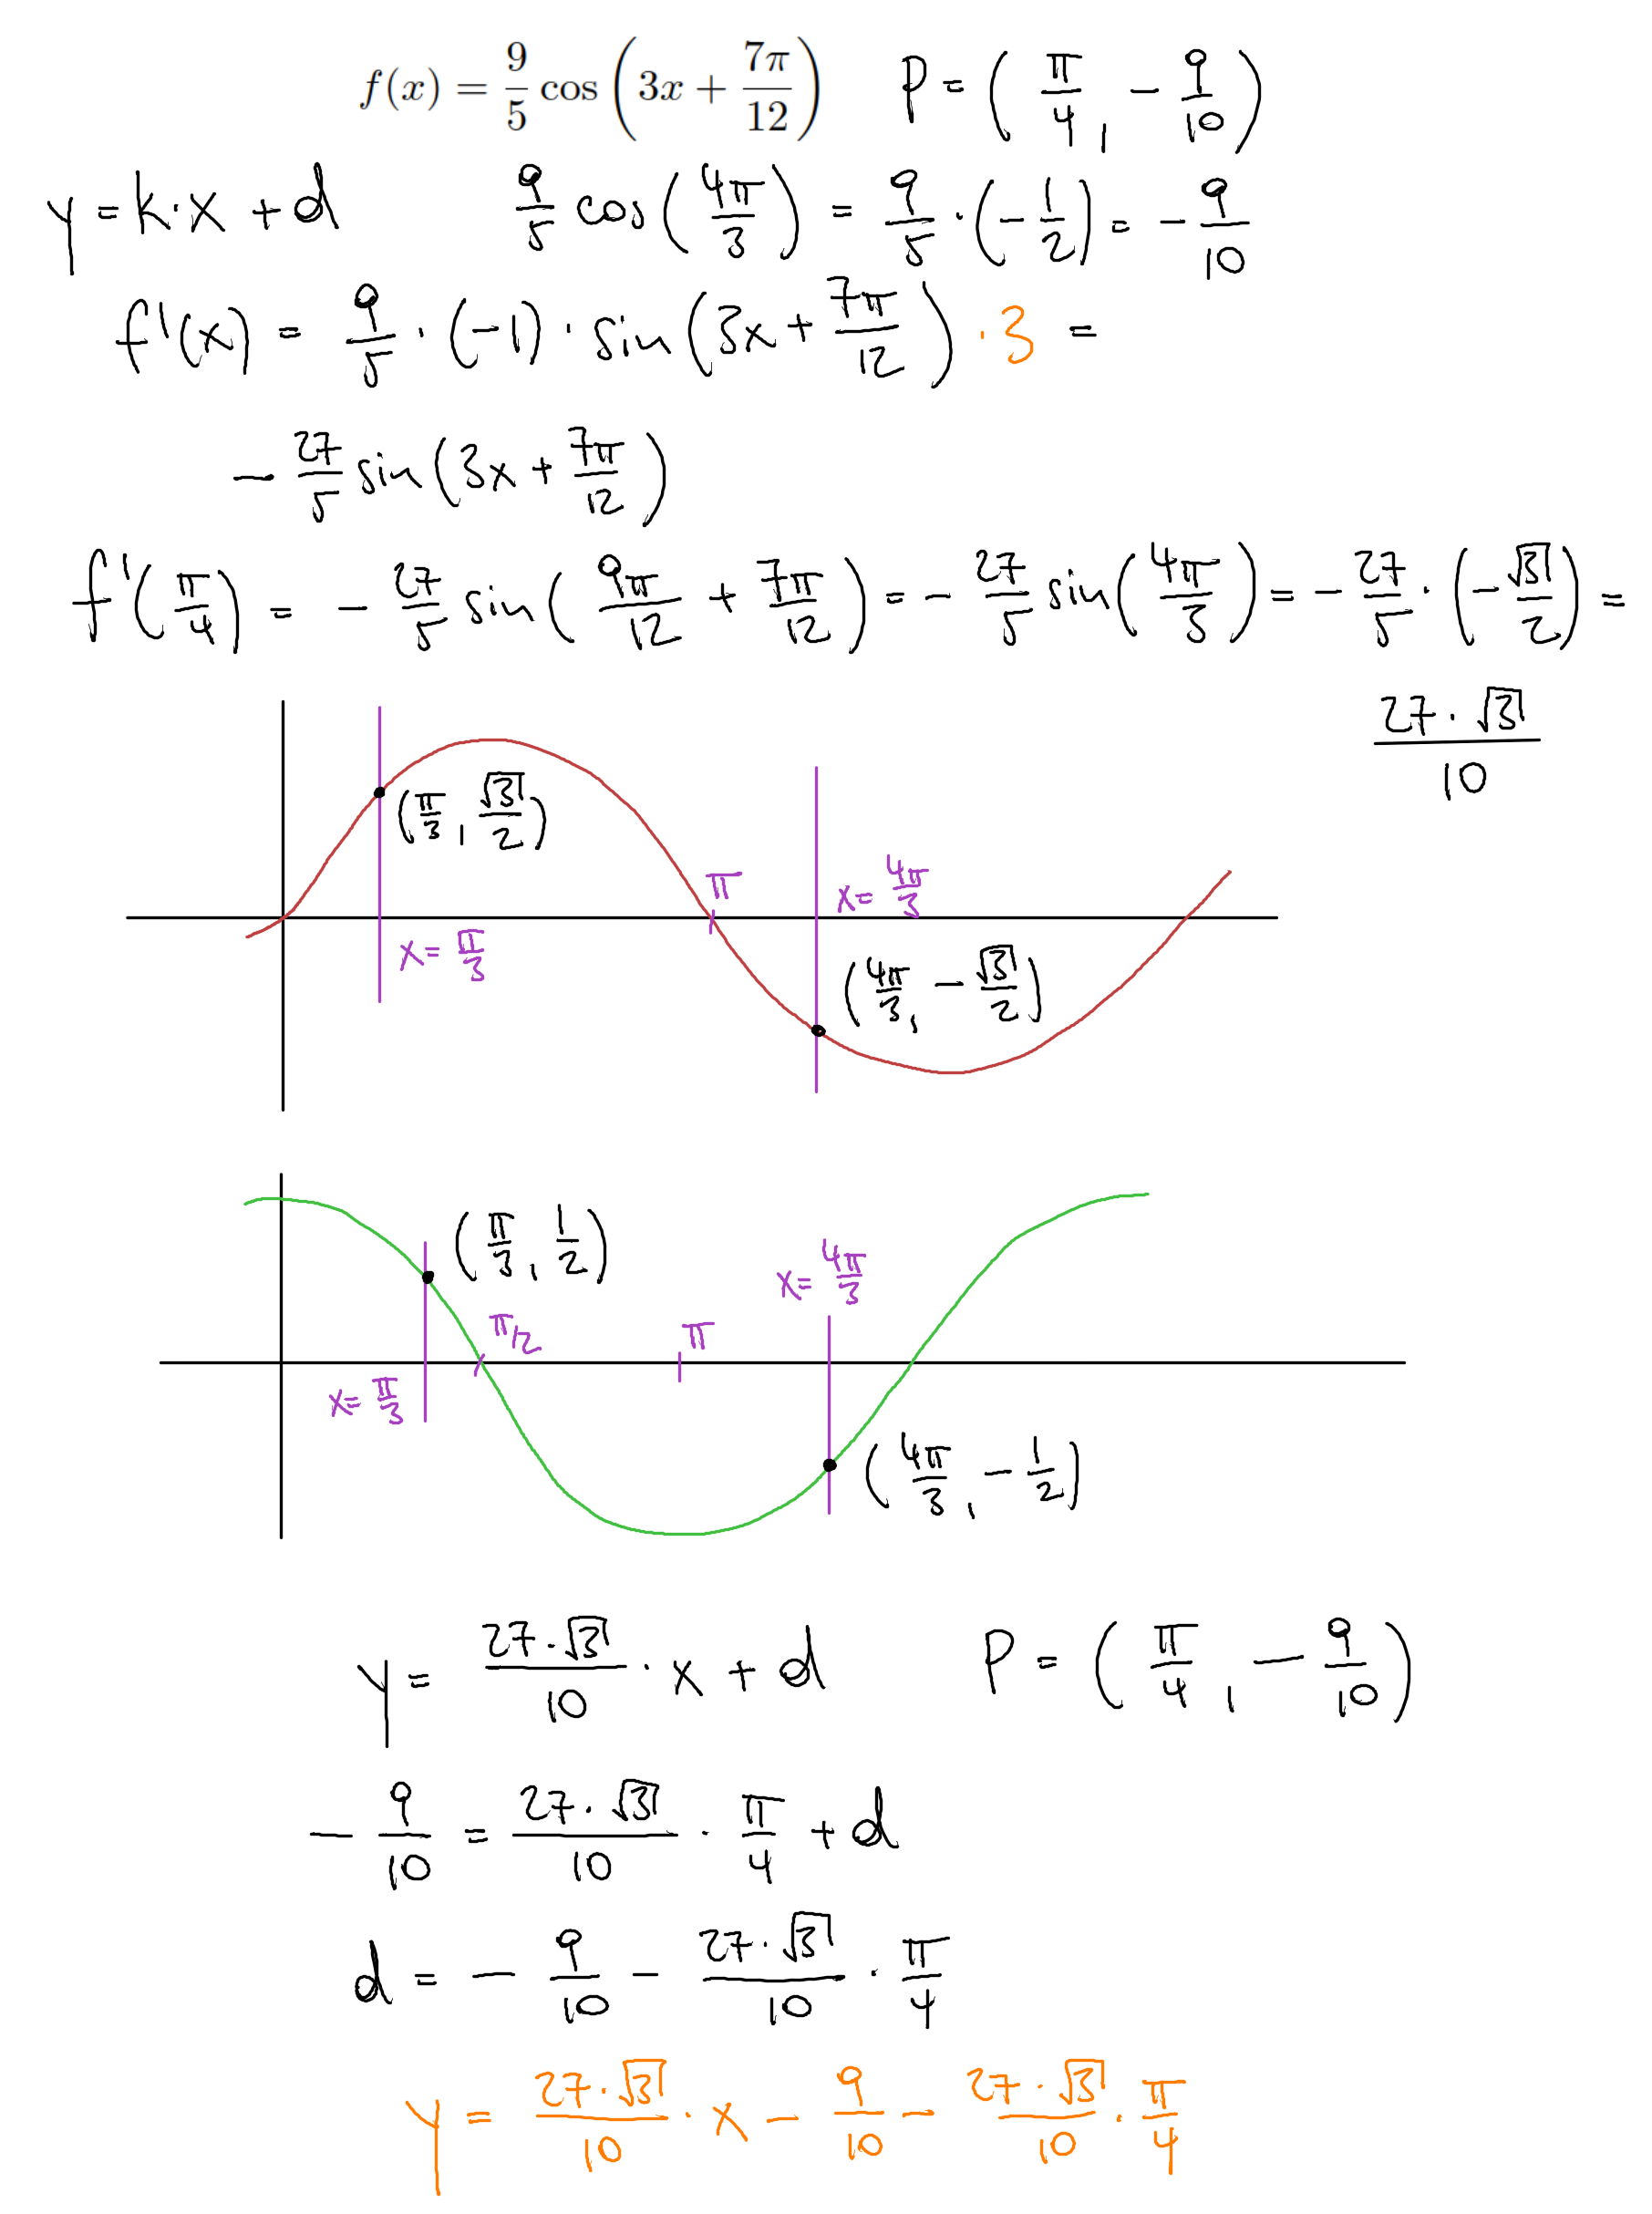 f(x) = 9/5 cos(3x + 7π/12) P = (π/4, -9/10)
y = k·x + d 9/5 cos(4π/3) = 9/5 · (-1/2) = -9/10
f'(x) = 9/5 · (-1) · sin(3x + 7π/12) · 3 =
- 27/5 sin(3x + 7π/12)
f'(π/4) = - 27/5 sin(9π/12 + 7π/12) = - 27/5 sin(4π/3) = - 27/5 · (-√3/2) =
27·√3/10
(π/3, √3/2)
π
x = 4π/3
x = π/3
(4π/3, -√3/2)
(π/3, 1/2)
x = 4π/3
π/2
π
x = π/3
(4π/3, -1/2)
y = 27·√3/10 · x + d P = (π/4, -9/10)
- 9/10 = 27·√3/10 · π/4 + d
d = - 9/10 - 27·√3/10 · π/4
y = 27·√3/10 · x - 9/10 - 27·√3/10 · π/4